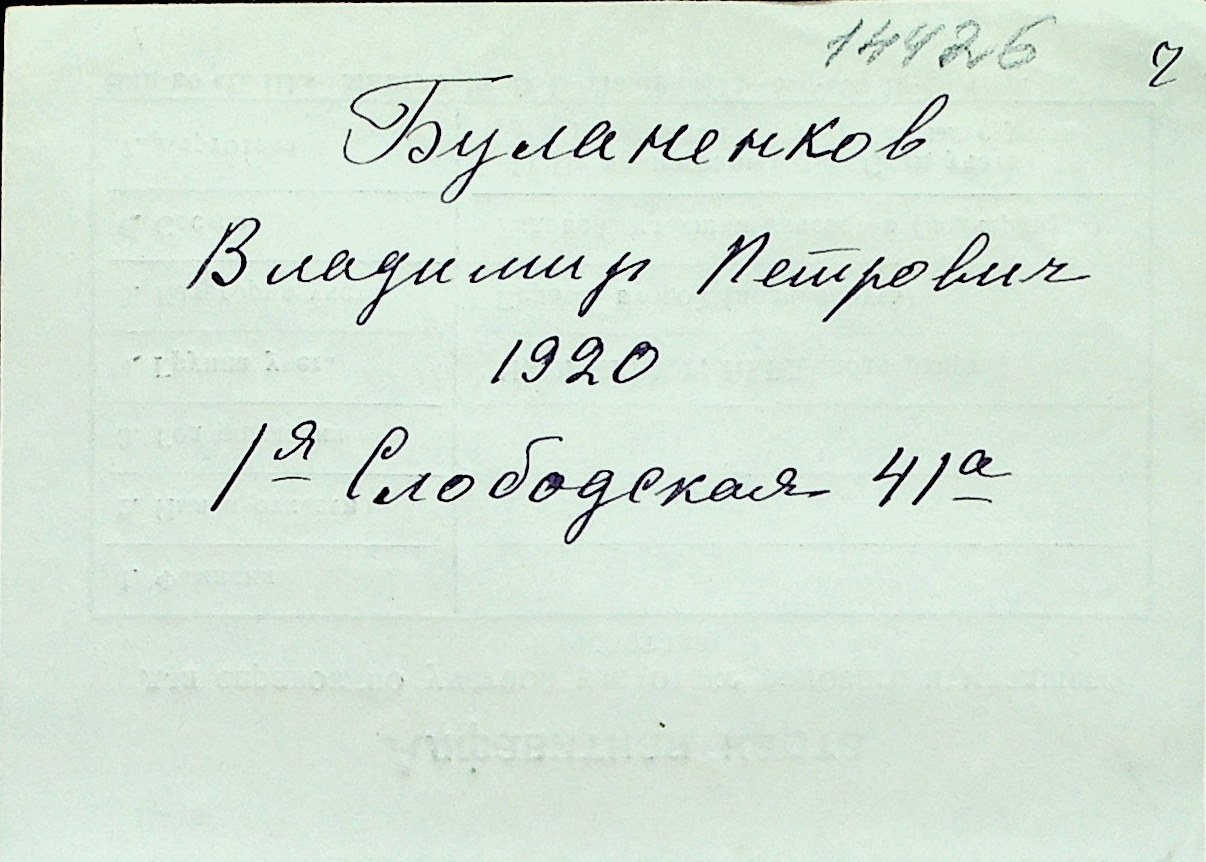 14426 ч
Буланенков
Владимир Петрович
1920
1я Слободская 41а